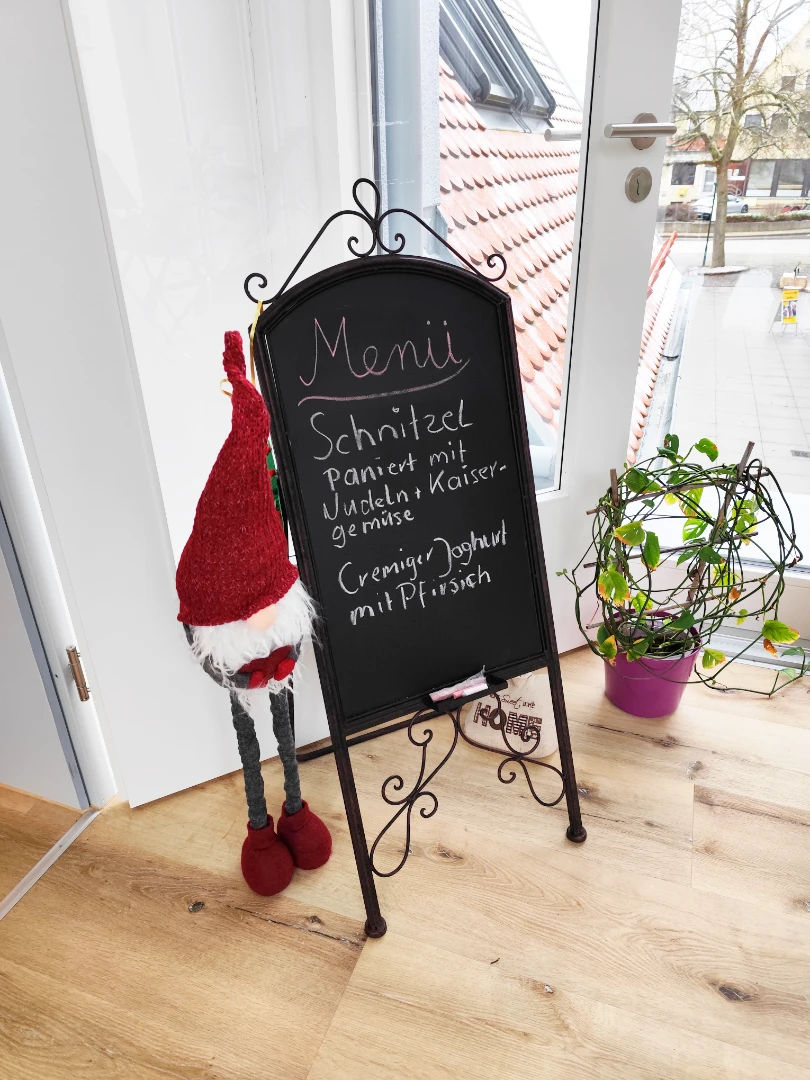 Menü
Schnitzel
paniert mit
Nudeln + Kaiser-
gemüse
Cremiger Joghurt
mit Pfirsich
HOME